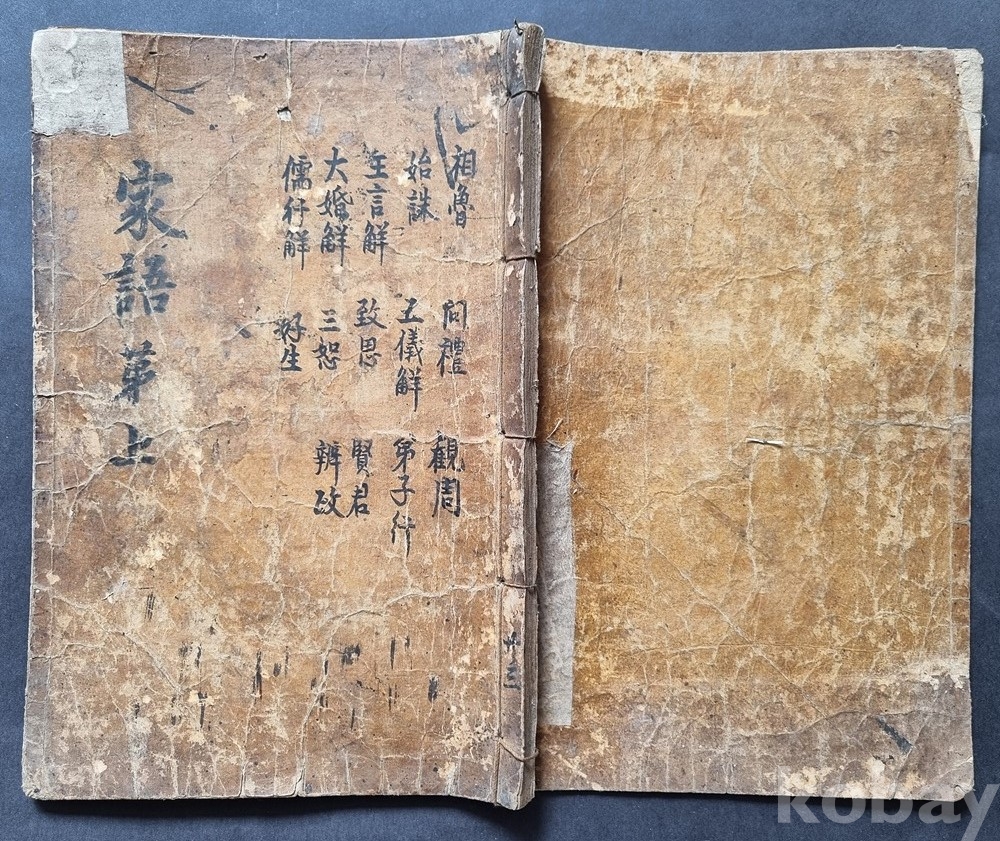 家語第上
相魯 問禮 觀周
始誅 五儀解 第子行
王言解 致思 賢君
大婚解 三恕 辨政
儒行解 好生
共三
kobay